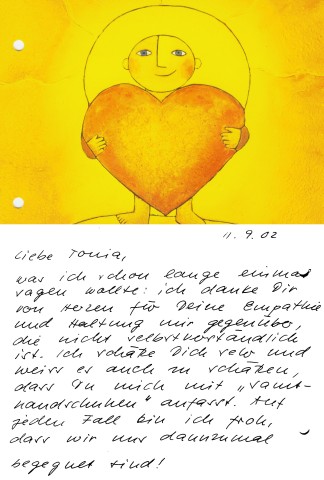 11. 9. 02
Liebe Tonia,
was ich schon lange einmal
sagen wollte: ich danke Dir
von Herzen für Deine Empathie
und Haltung mir gegenüber,
die nicht selbstverständlich
ist. Ich schäze Dich sehr und
weiss es auch zu schäzen,
dass Du mich mit „Samt-
handschuhen" anfasst. Auf
jeden Fall bin ich froh,
dass wir uns dannzumal
begegnet sind!